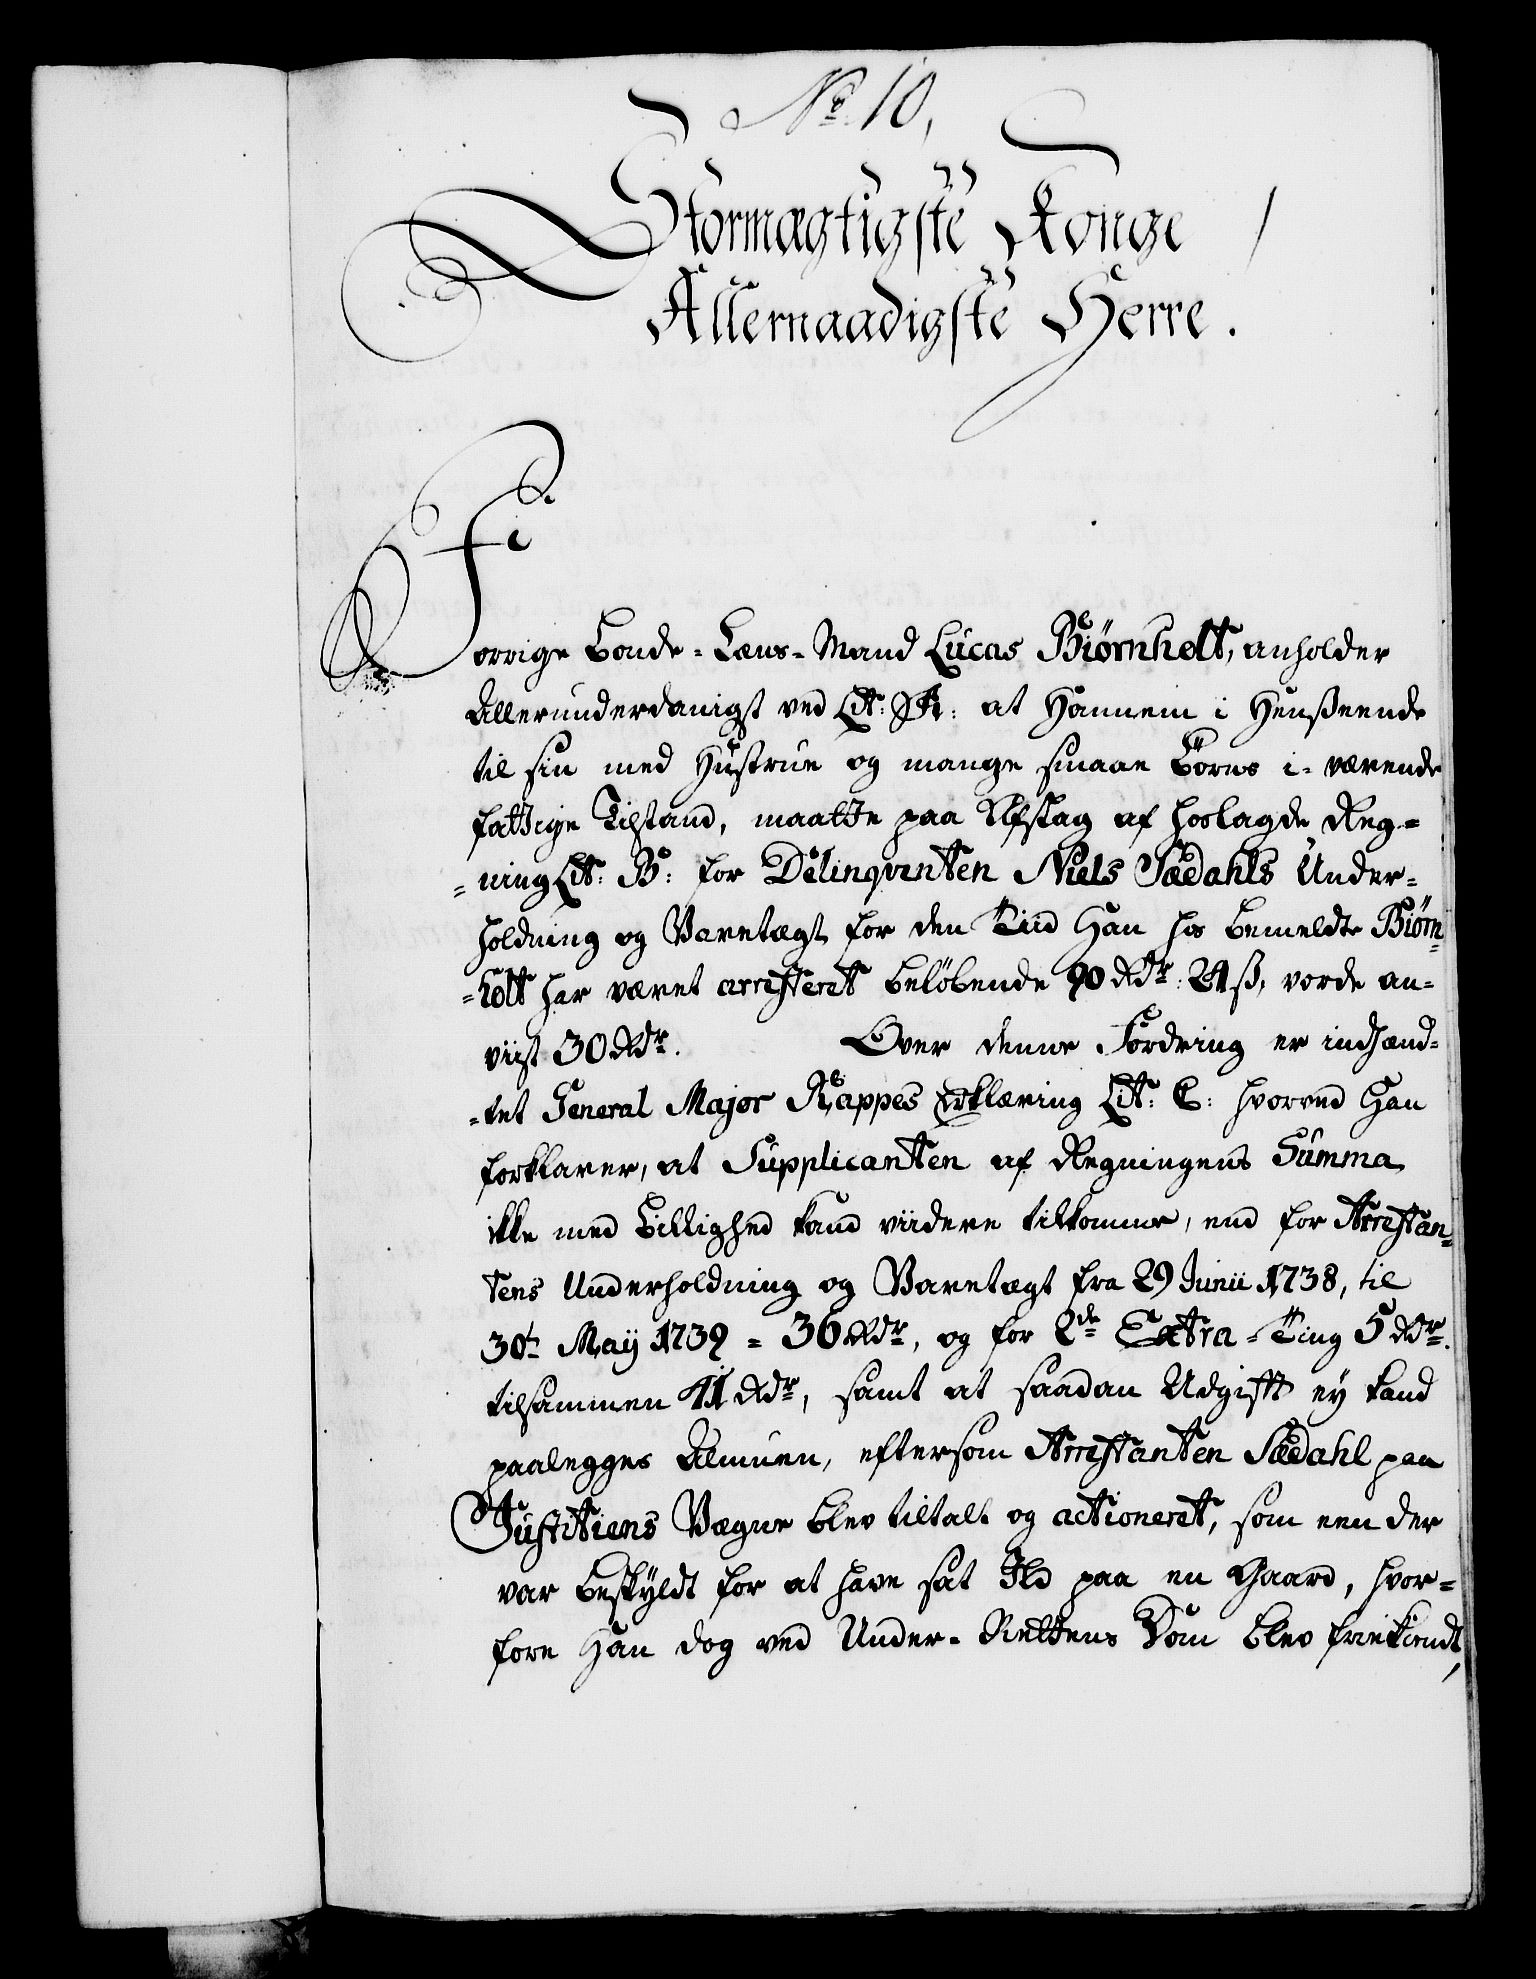 No 10,
Stormægtigste Konge
Allernaadigste Herre.
Forrige Bonde-Læns-Mand Lucas Biørnholt, anholder
Allerunderdanigst ved Lit: A: at Hannem i Henseende
til sin med Hustrue og mange smaae Börns i-værende
fattige Tilstand, maatte paa Afslag af hoslagde Reg-
-ning Lit: B: for Delinqventen Niels Sædahls Under-
holdning og Varetægt for den Tiid Han hos bemeldte Biørn-
-holt har været arresteret beløbende 90 Rdr: 24 ß, vorde an-
viist 30 Rdr. Over denne Fordring er indsænd-
-tet General Major Rappes Erklæring Lit: C: hvorved Han
forklarer, at Supplicanten af Regningens Summa
ikke med Billighed kand viidere tilkomme, end for Arrestan-
tens Underholdning og Varetægt fra 29 Junii 1738, til
30t May 1739 = 36 Rdr, og for 2de Extra-Ting 5 Rdr.
tilsammen 41 Rdr, samt at saadan Udgift ey kand
paalegges Almuen, eftersom Arrestanten Sædahl paa
Justitiens Vegne blev tiltalt og actioneret, som een der
var beskyldt for at have sat Ild paa en Gaard, hvor-
fore Han dog ved Under-Rettens Dom blev friekiendt,